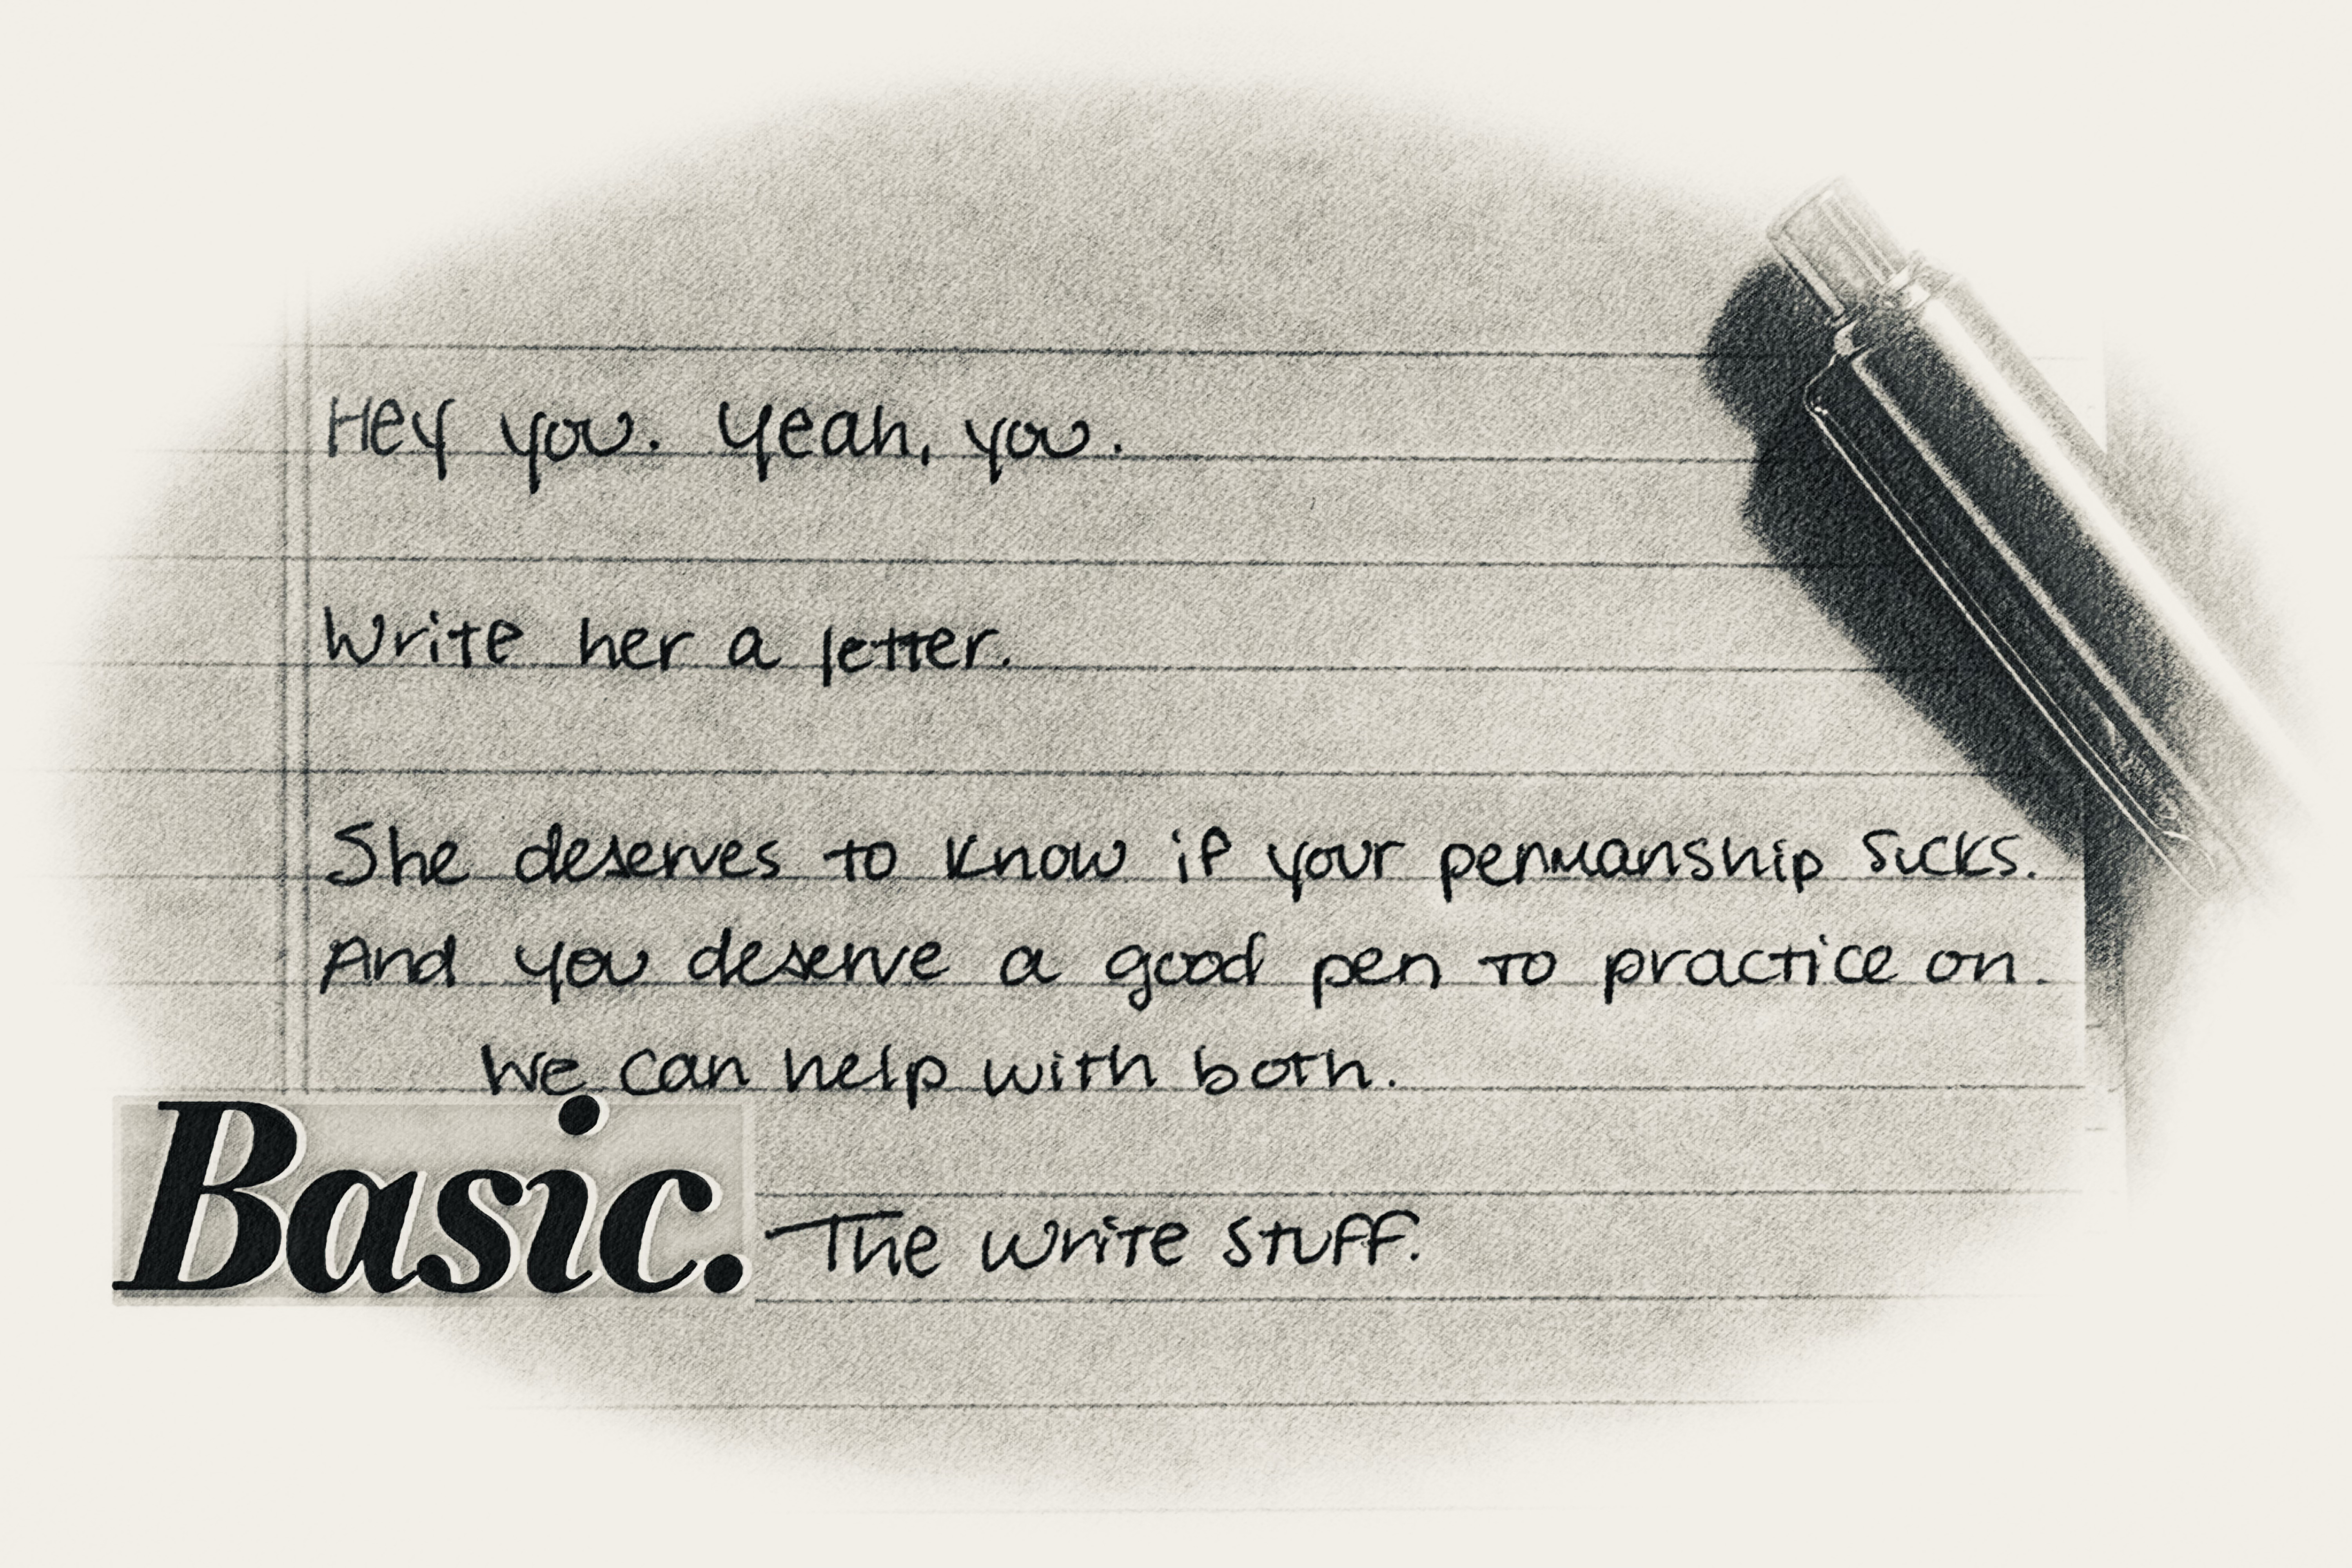 Hey you. Yeah, you.
Write her a letter.
She deserves to know if your penmanship sucks.
And you deserve a good pen to practice on.
We can help with both.
Basic. The write stuff.